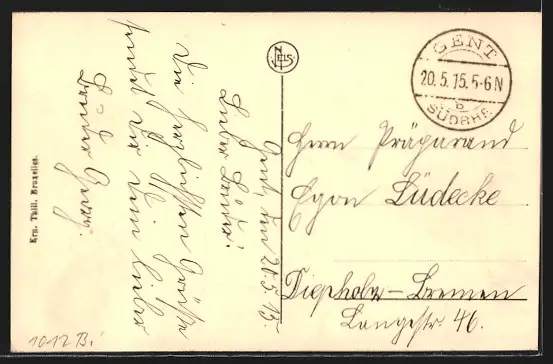 Gent, den 20.5.15.
Lieber Bruder!
Die herzlichsten Grüße
sendet dir dein lieber
Bruder Georg.
Herrn Präparand
Egon Lüdecke
Diepholz – Bremen
Langestr. 46.
GENT
20.5.15.5-6N
b
SÜDBHF
NELS
Ern. Thill. Bruxelles.
1012 B.